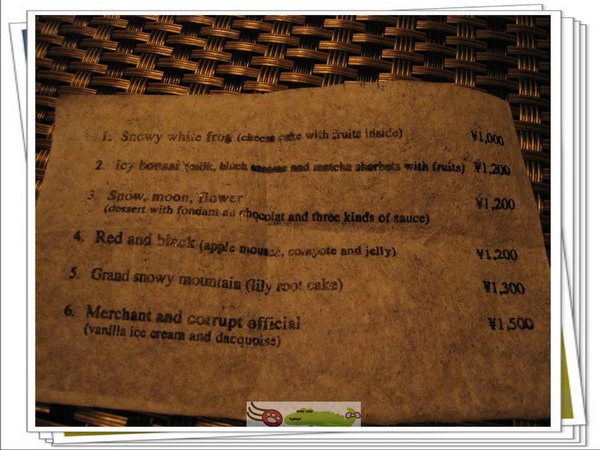 1. Snowy white frog (cheese cake with fruits inside) ¥1,000
2. Icy bonsai (milk, black sesame and matcha sherbets with fruits) ¥1,200
3. Snow, moon, flower ¥1,200
(dessert with fondant au chocolat and three kinds of sauce)
4. Red and black (apple mousse, compote and jelly) ¥1,200
5. Grand snowy mountain (lily root cake) ¥1,300
6. Merchant and corrupt official ¥1,500
(vanilla ice cream and dacquoise)